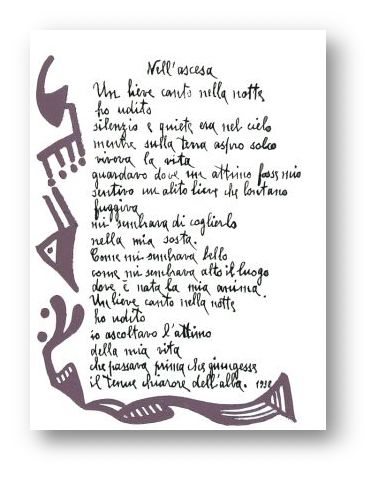 Nell'ascesa
Un lieve canto nella notte
ho udito
silenzio e quiete era nel cielo
mentre sulla terra aspro solco
viveva la vita
guardavo dove un attimo fosse mio
sentivo un alito lieve che lontano
fuggiva
mi sembrava di coglierlo
nella mia sosta.
Come mi sembrava bello
come mi sembrava alto il luogo
dove è nata la mia anima.
Un lieve canto nella notte
ho udito
io ascoltavo l'attimo
della mia vita
che passava prima che giungesse
il tenue chiarore dell'alba.